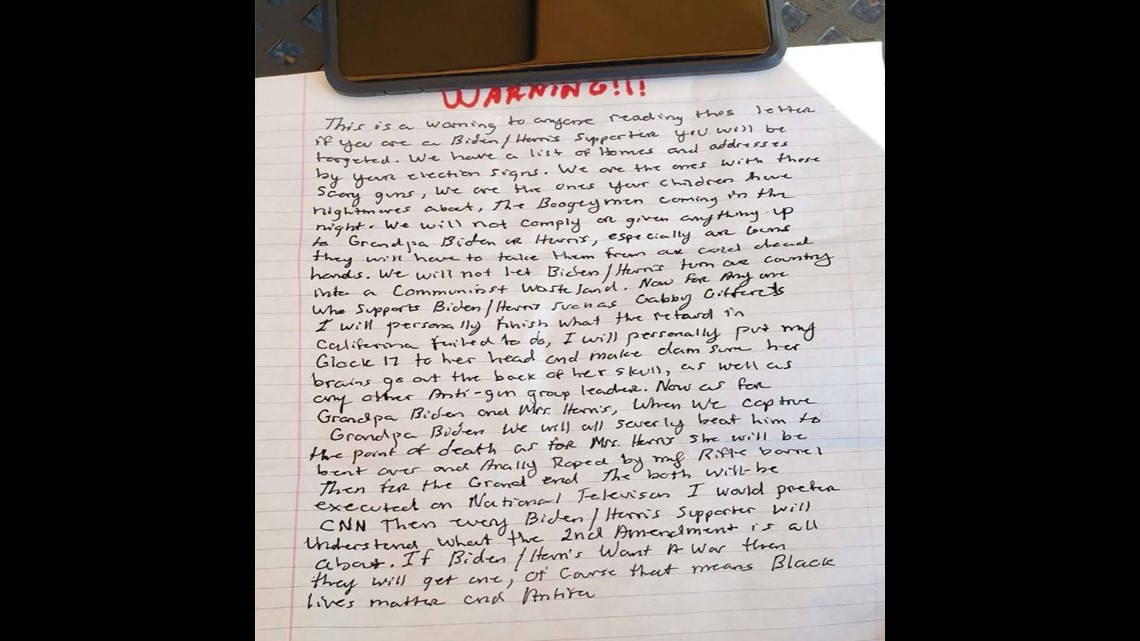 WARNING!!!
This is a warning to anyone reading this letter
if you are a Biden/Harris Supporter you will be
targeted. We have a list of Homes and addresses
by your election signs. We are the ones with those
scary guns, We are the ones your children have
nightmares about, The Boogeymen coming in the
night. We will not comply or given anything up
to Grandpa Biden or Harris, especially our Guns
they will have to take them from our cold dead
hands. We will not let Biden/Harris turn our country
into a Communist Wasteland. Now for Any one
who supports Biden/Harris such as Gabby
I will personally finish what the retard in
California failed to do, I will personally put my
Glock 17 to her head and make dam sure her
brains go out the back of her skull, as well as
any other Anti-gun group leader. Now as for
Grandpa Biden and Mrs. Harris, When We captive
Grandpa Biden We will all severly beat him to
the point of death as for Mrs. Harris she will be
bent over and Anally Raped by my Rifle barrel
Then for the Grand end The both will be
executed on National Televison I would prefer
CNN Then every Biden/Harris Supporter will
Understand what the 2nd Amendment is all
about. If Biden/Harris Want A War then
they will get one, Of Course that means Black
lives matter and Antifa